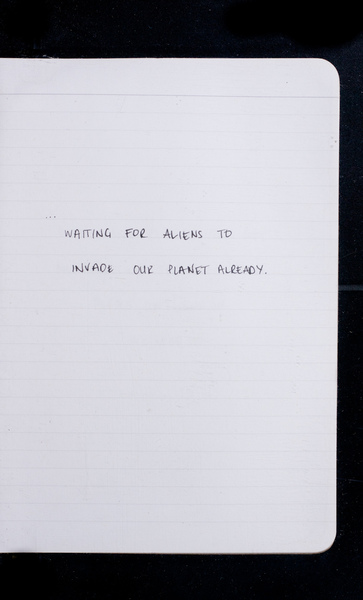 ...
WAITING FOR ALIENS TO
INVADE OUR PLANET ALREADY.